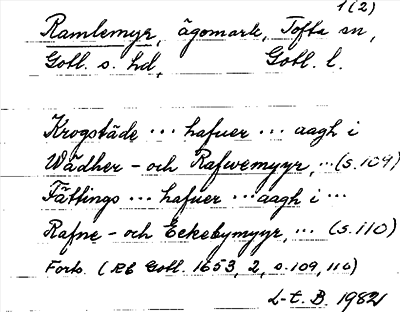 1(2)
Ramlemyr, ägomark, Tofta sn,
Gotl. s. hd, Gotl. l.
Krogstäde ... hafuer ... aagh i
Wädher - och Rafwemyyr, ... (s.109)
Fättings ... hafuer ... aagh i ...
Rafne - och Eckebymyyr, ... (s.110)
Forts. (RB Gotl. 1653, 2, s.109, 110)
L-t. B. 1982